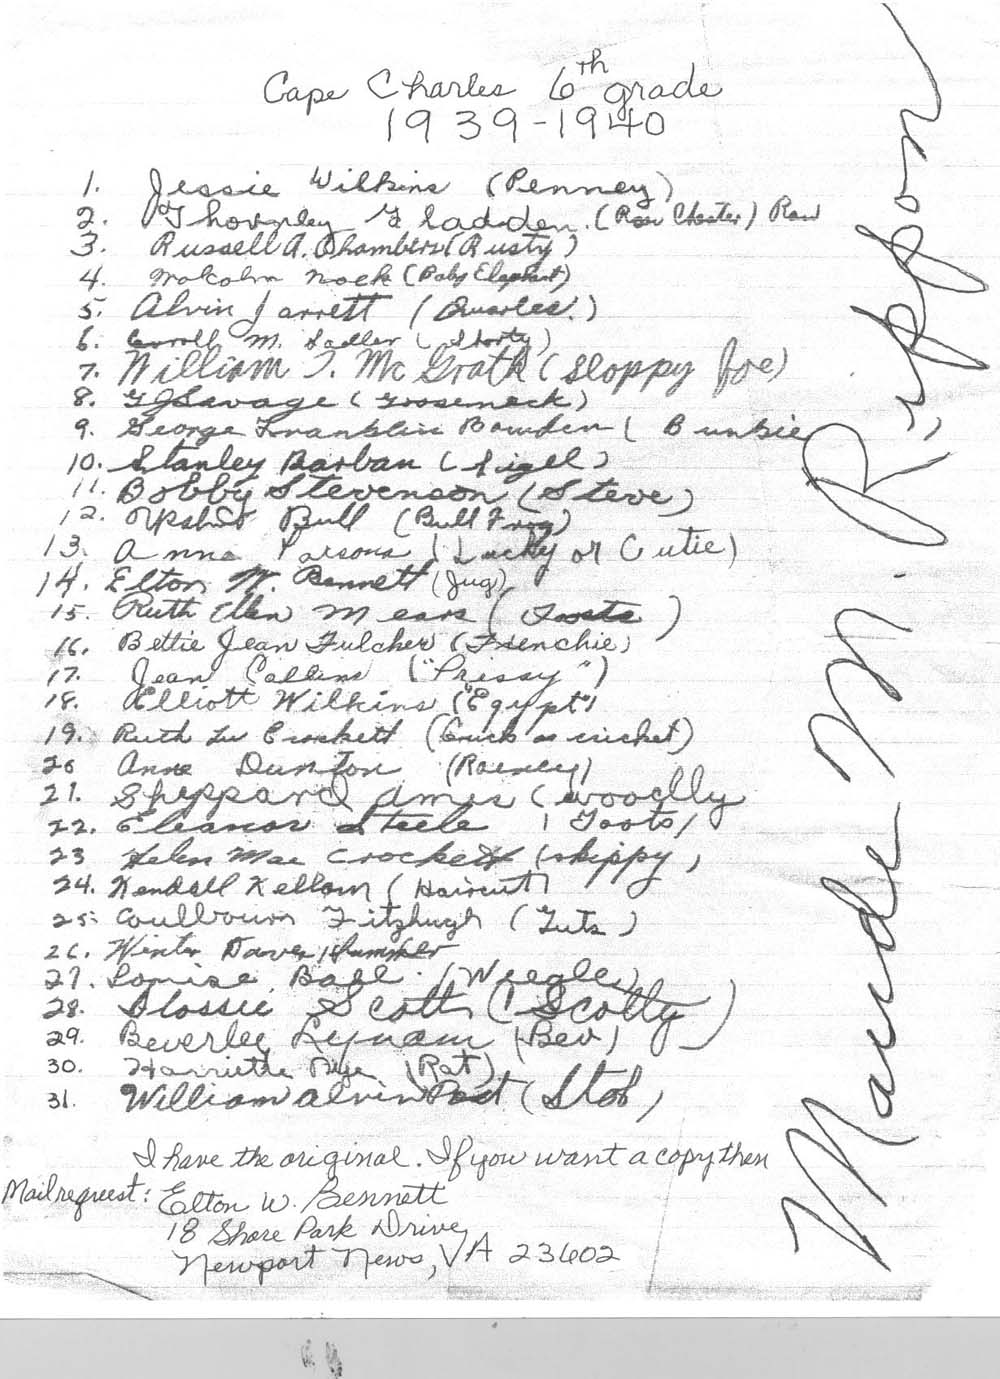 Cape Charles 6th grade
1939-1940
1. Jessie Wilkins (Penney)
2. Thornley Gladden. (Chester) Raw
3. Russell A. Chambers (Rusty)
4. Malcolm Nock (Baby Elephant)
5. Alvin Jarrett (Quarles.)
6. Carroll M. Sadler (Shorty)
7. William T. McGrath (Sloppy Joe)
8. TJ Savage (Gooseneck)
9. George Franklin Bowden (Bunkie
10. Stanley Barban (Sigel)
11. Bobby Stevenson (Steve)
12. Upshur Bull (Bull Frog)
13. Anna Parsons (Lucky or Cutie)
14. Elton W. Bennett (Jug)
15. Ruth Ellen Mears (Toots)
16. Bettie Jean Fulcher (Frenchie)
17. Jean Collins ("Prissy")
18. Elliott Wilkins ("Egypt")
19. Ruth Lu Crockett (Crick or cricket)
20 Anne Dunton (Rainey)
21. Sheppard Ames (woodlly
22. Eleanor Steele (Toots)
23 Helen Mae Crockett (skippy)
24. Kendall Kellam (Haircut)
25. Coulbourn Fitzhugh (Futz)
26. Winter Hummer
27. Louise Ball. (Weegle)
28. Flossie Scott (Scotty)
29. Beverley Lynam (Bev)
30. Harriette Nye (Rat)
31. William Alvin Post (Stob)
Maude M. Rippon
I have the original. If you want a copy then
Mail request: Elton W. Bennett
18 Shore Park Drive
Newport News, VA 23602